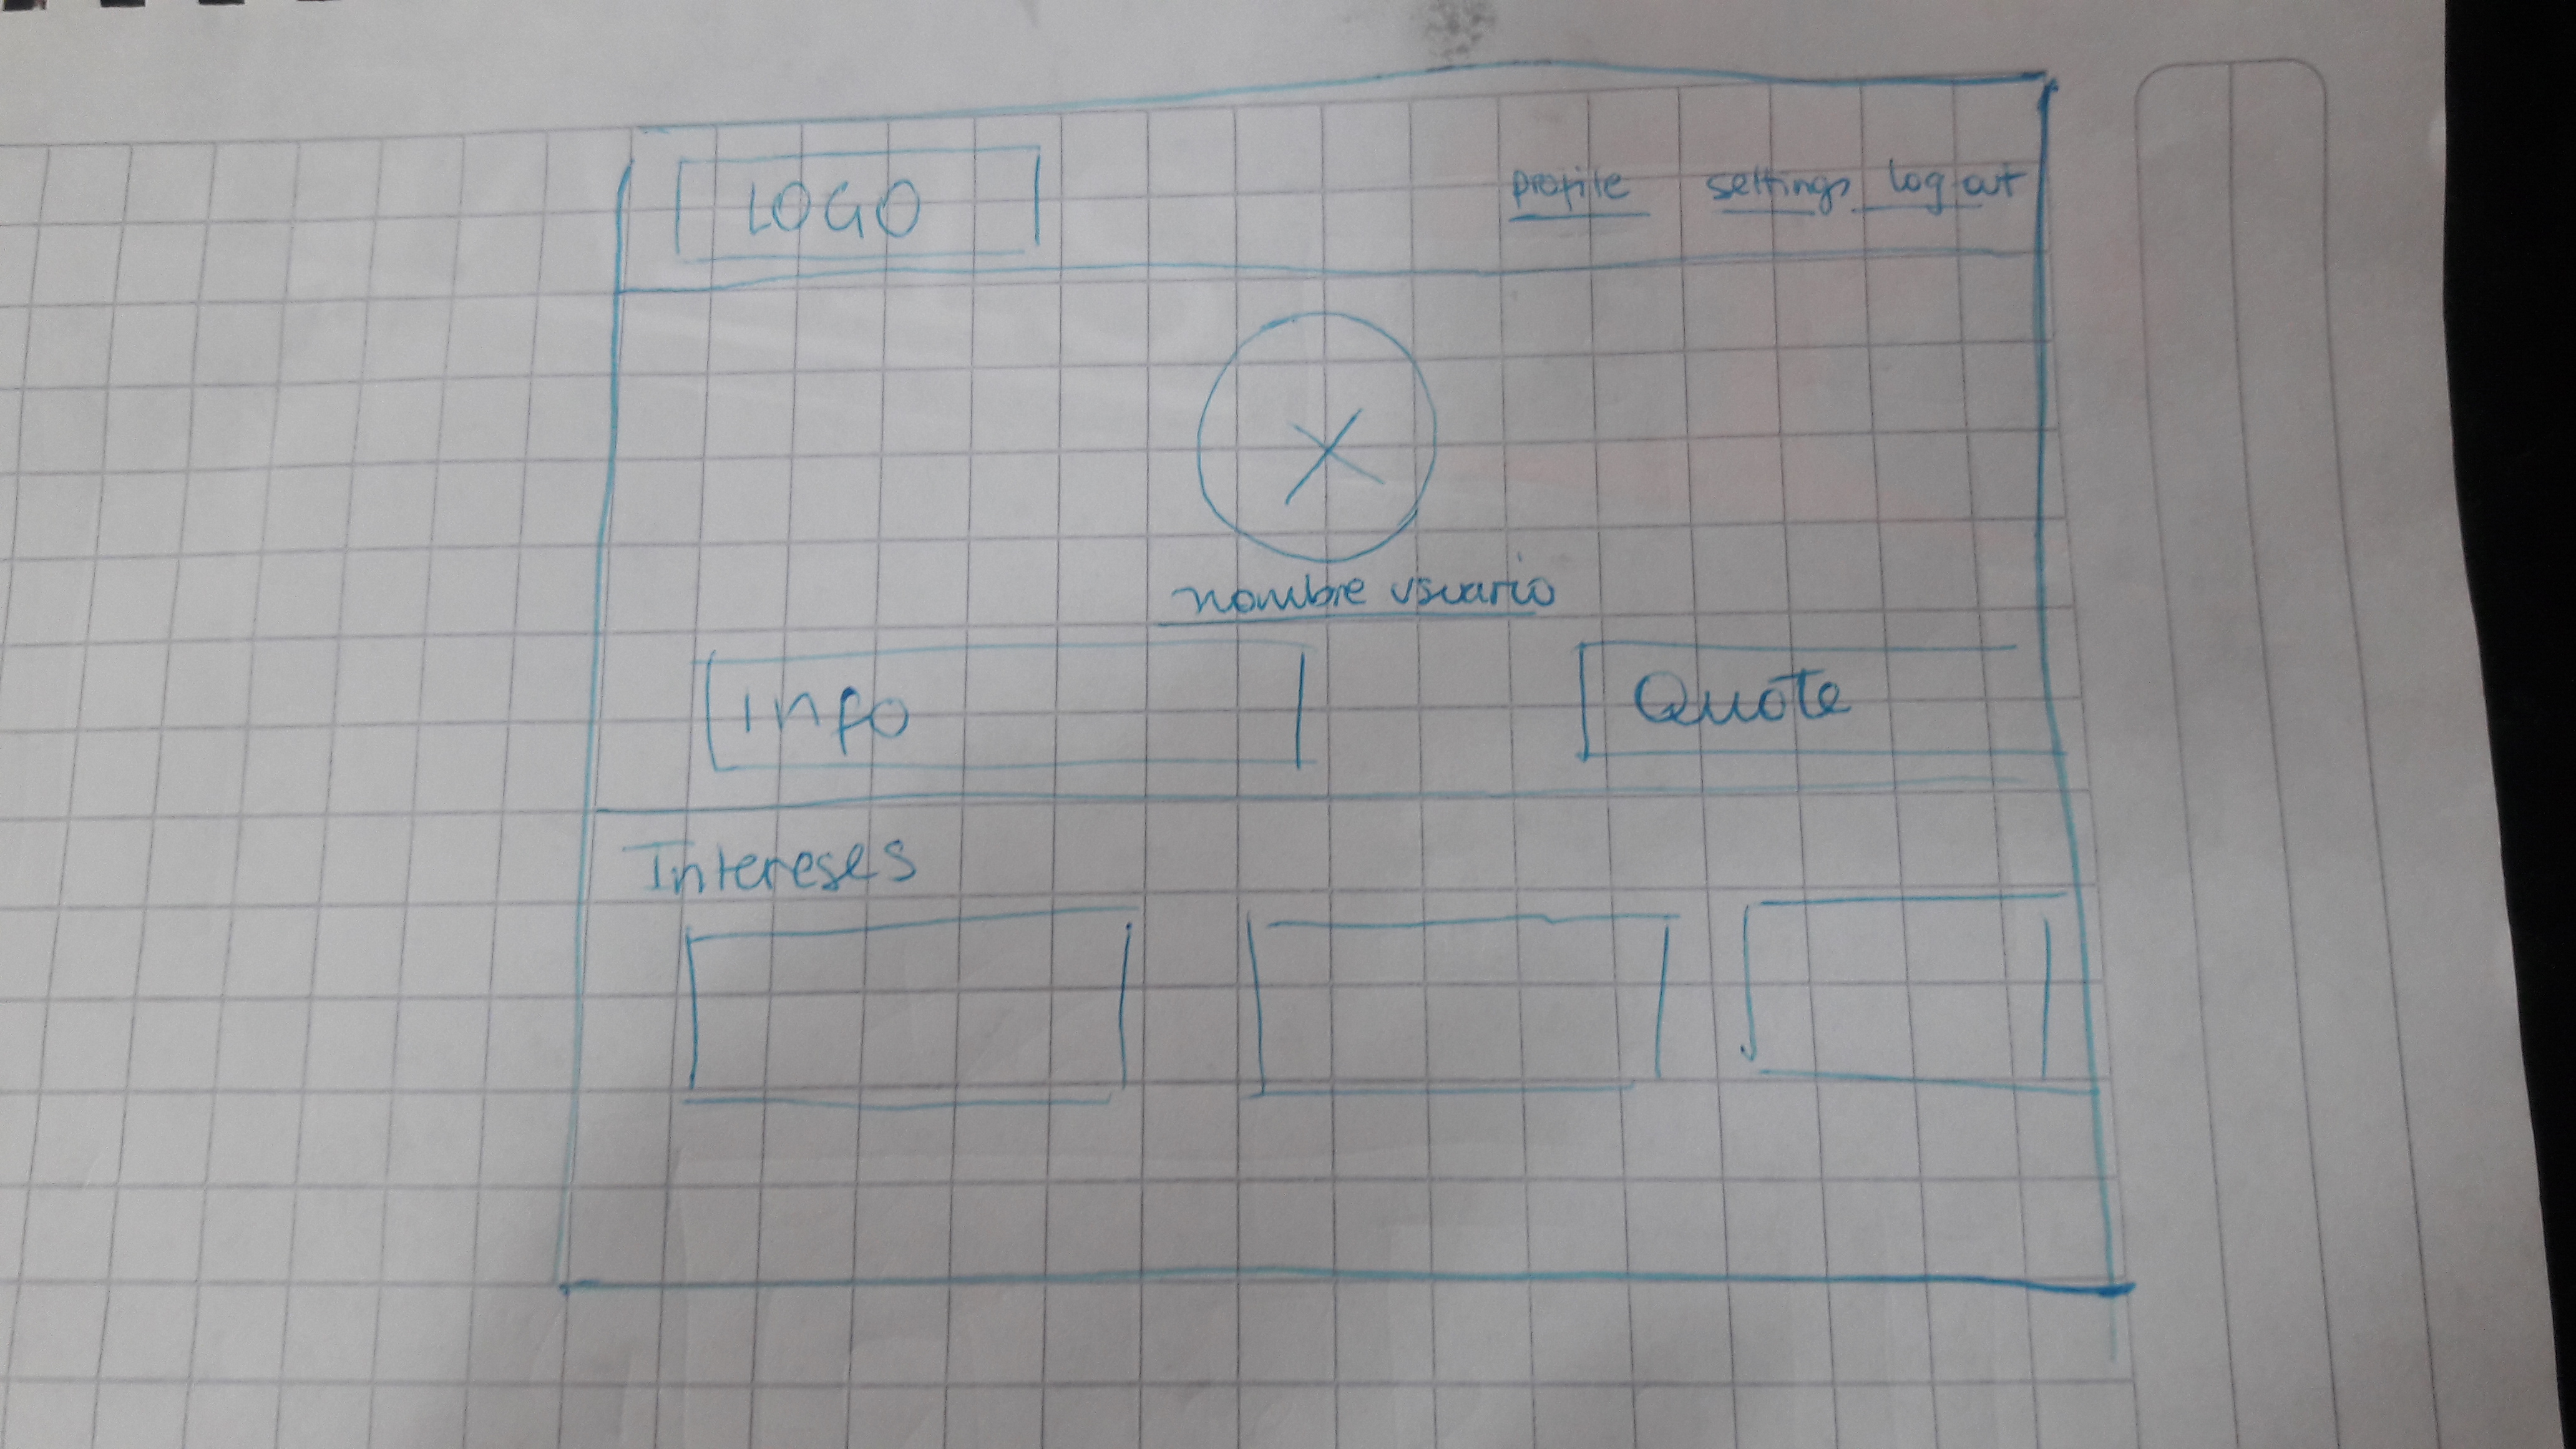 LOGO
profile settings log out
nombre usuario
info
Quote
Intereses